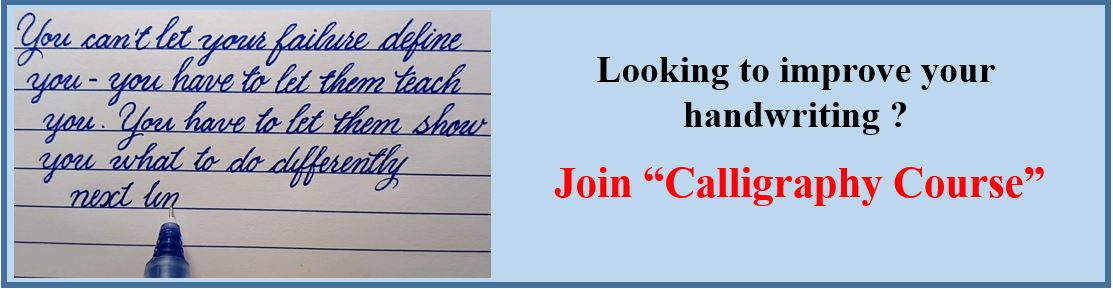 You can't let your failure define
you - you have to let them teach
you. You have to let them show
you what to do differently
next tim
Looking to improve your
handwriting ?
Join “Calligraphy Course”